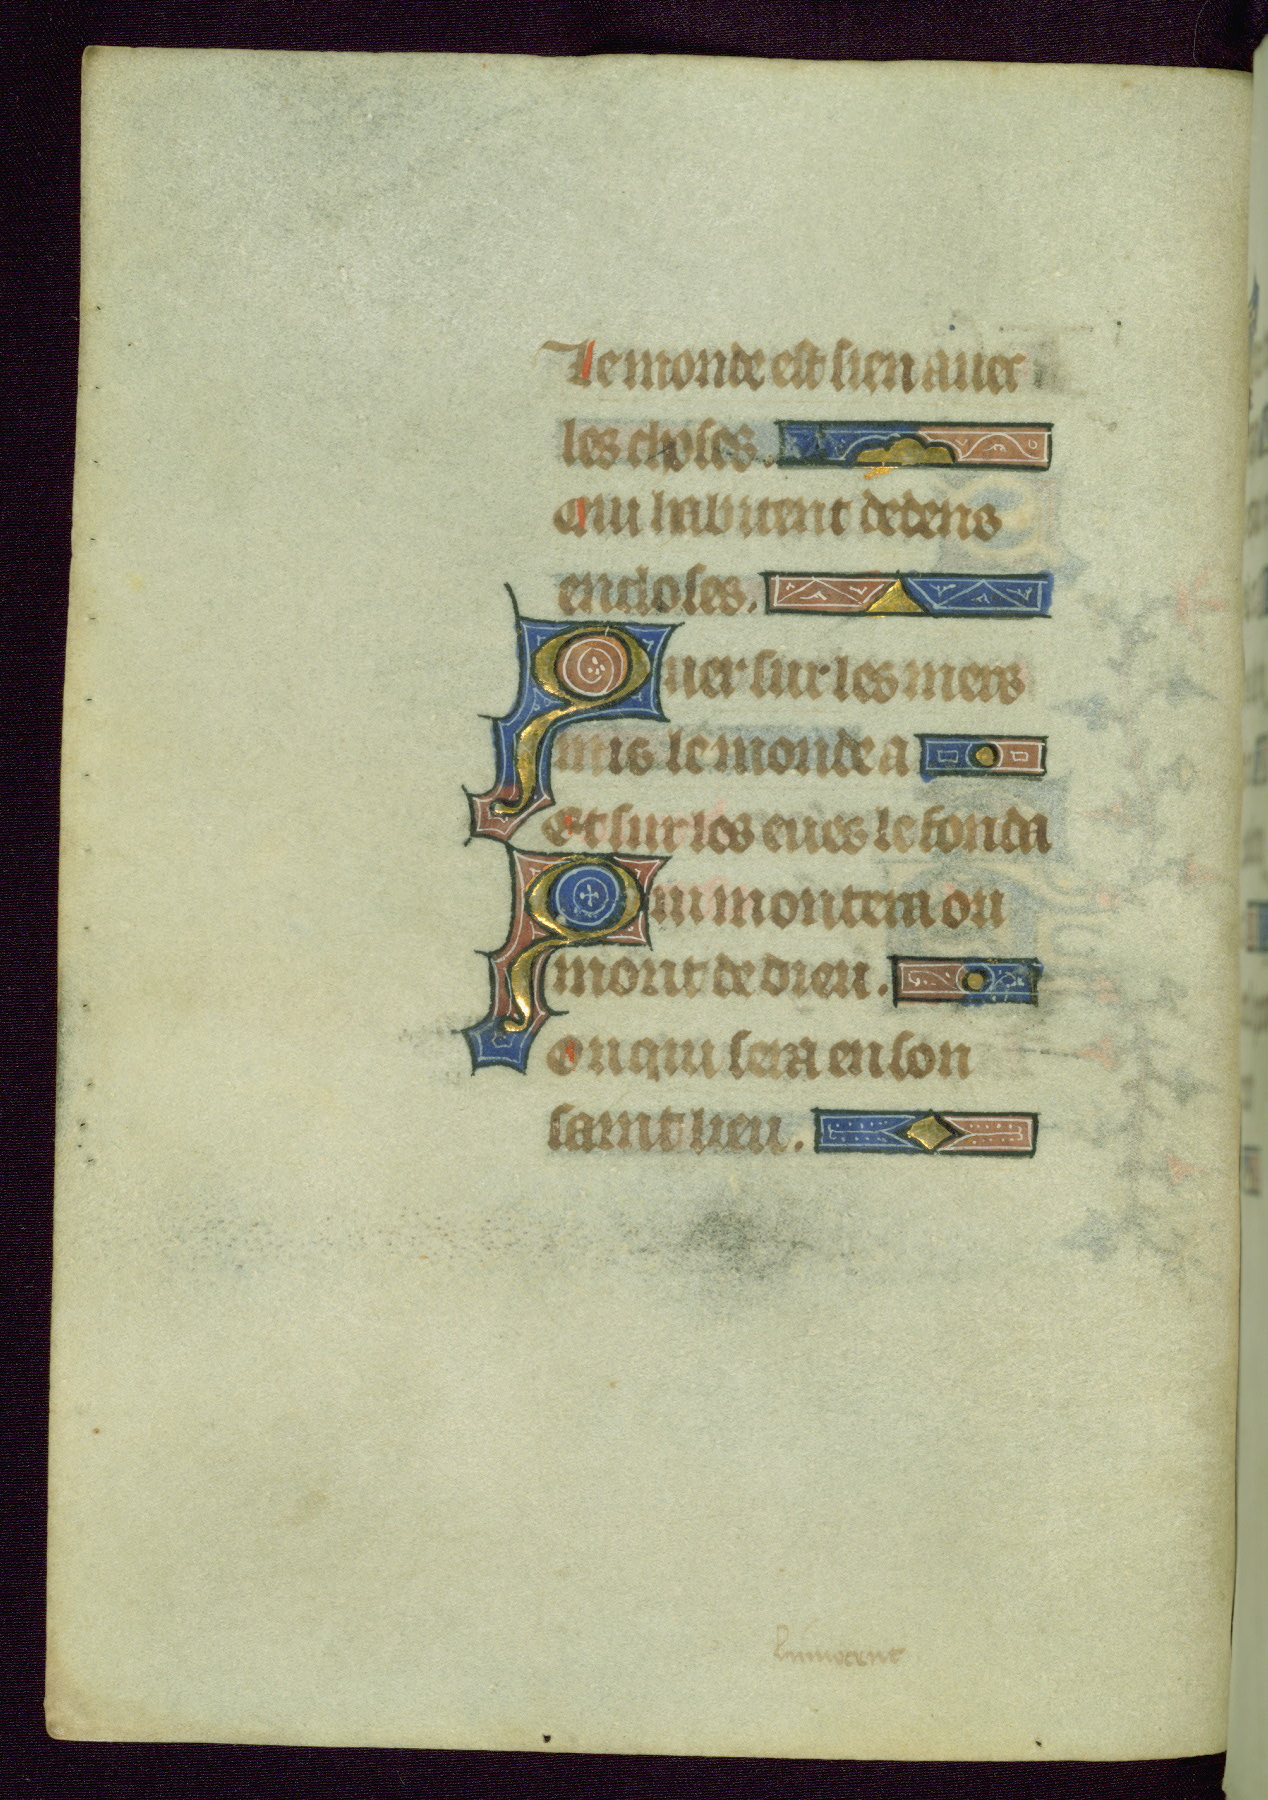 Le monde est sien auec
les choses.
Qui habitent dedens
encloses.
Quer sur les mers
mis le monde a
Et sur les eues le fonda
Qui montera ou
mont de dieu.
Ou qui sera en son
saint lieu.
Linnocent